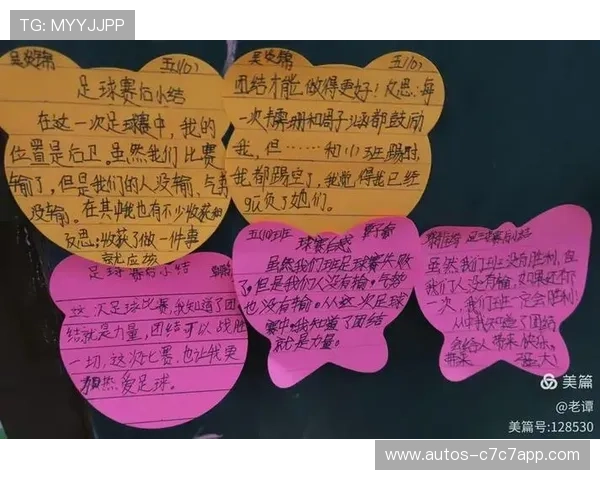 TG: MYYJJPP
五(10)
足球赛后小结
在这一次足球赛中，我的
位置是后卫。虽然我们比赛
输了，但是我们的人没输，气势
没输。在其中我也有不少收获和
反思：收获了做一件事
就应该
五(10)
团结才能做得更好！反思：每
一次
和周子涵都鼓励
我，但……和小班踢时，
我都踢空了，我觉得我已经
辜负了她们。
足球赛后小结
这次足球比赛，我知道了团
结就是力量，团结可以战胜
一切，这次比赛，也让我更
加热爱足球。
五(10)班
球赛后感
虽然我们班足球赛失败
了。但是我们人没有输。气势
也没有输。从这一次足球
赛中。我知道了团结
就是力量。
足球赛后小结
虽然我们班没有胜利，但
我们人没有输。如果还有下
一次，我们班一定会胜利！
从中我知道了团结
会给人带来快乐。
美篇
@老谭
美篇号:128530
www.autos-c7c7app.com